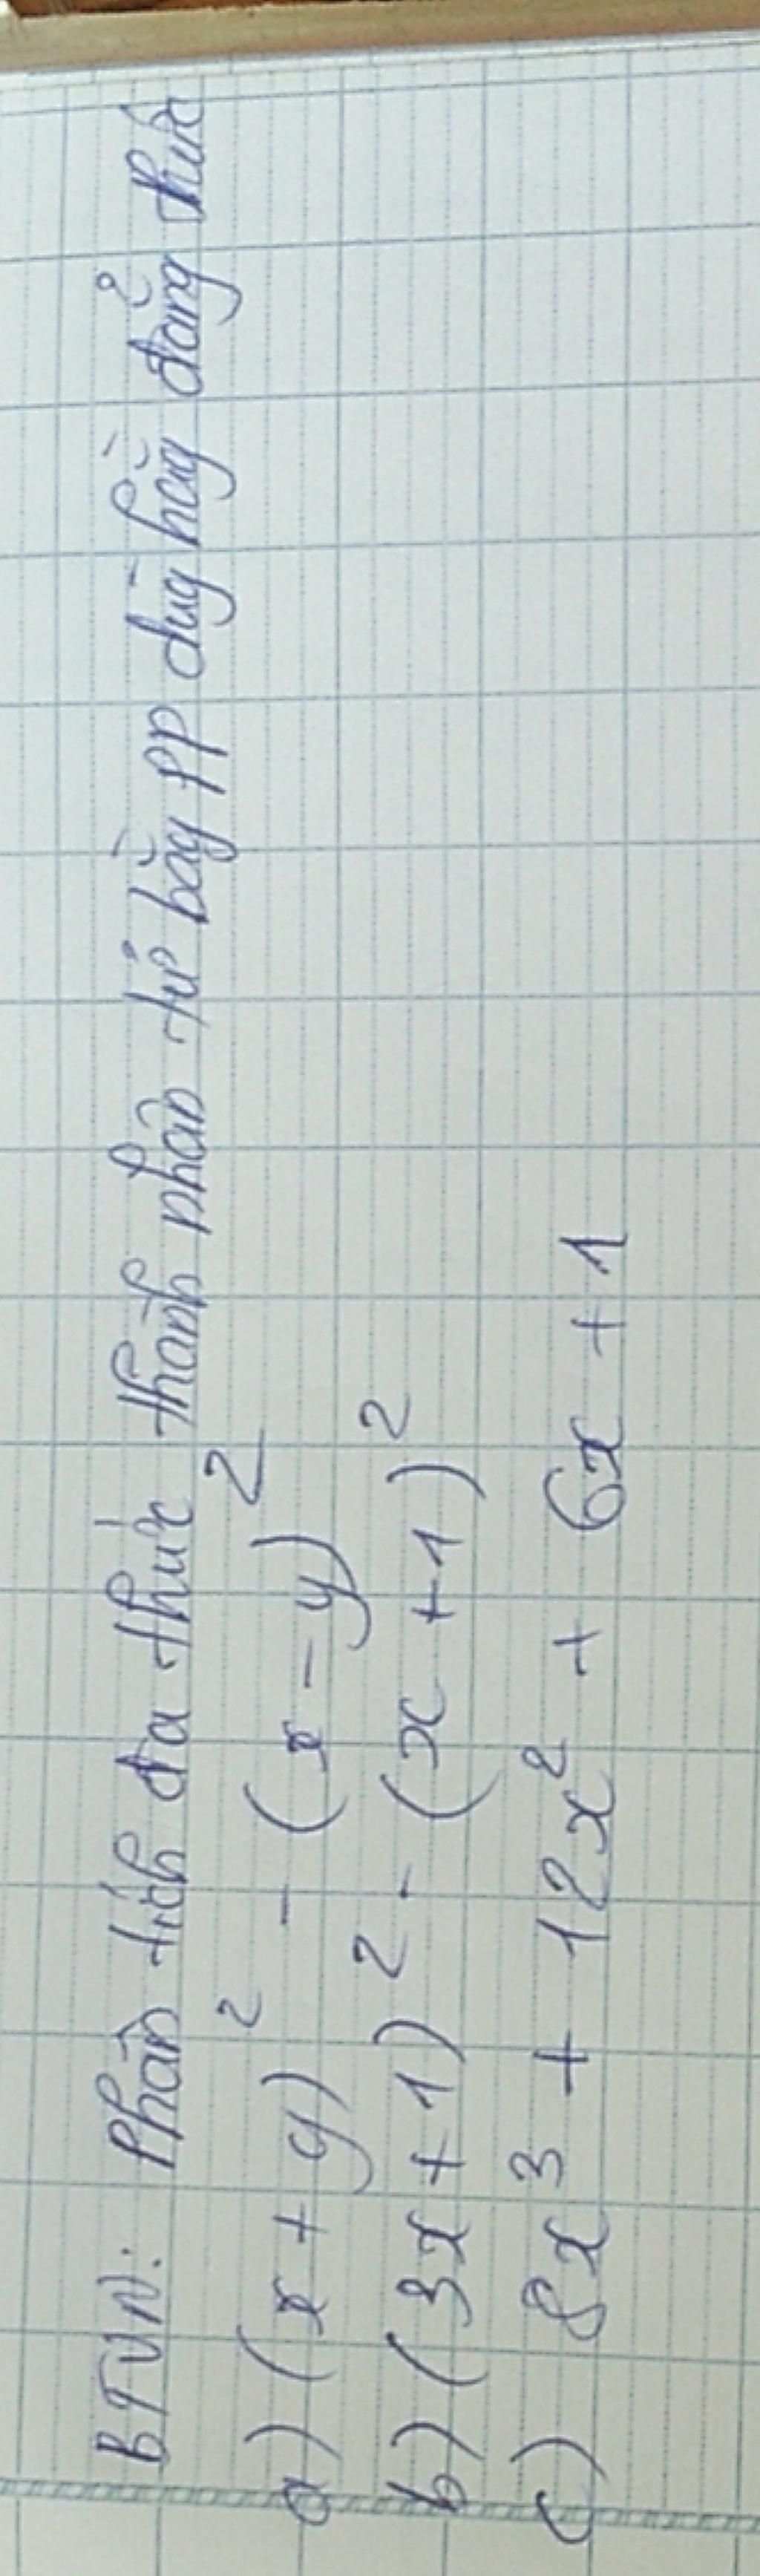 BTVN: Phân tích đa thức thành nhân tử bằg pp dùg hằg đẳng thức
a) (x + y)² - (x - y)²
b) (3x + 1)² - (x + 1)²
c) 8x³ + 12x² + 6x + 1